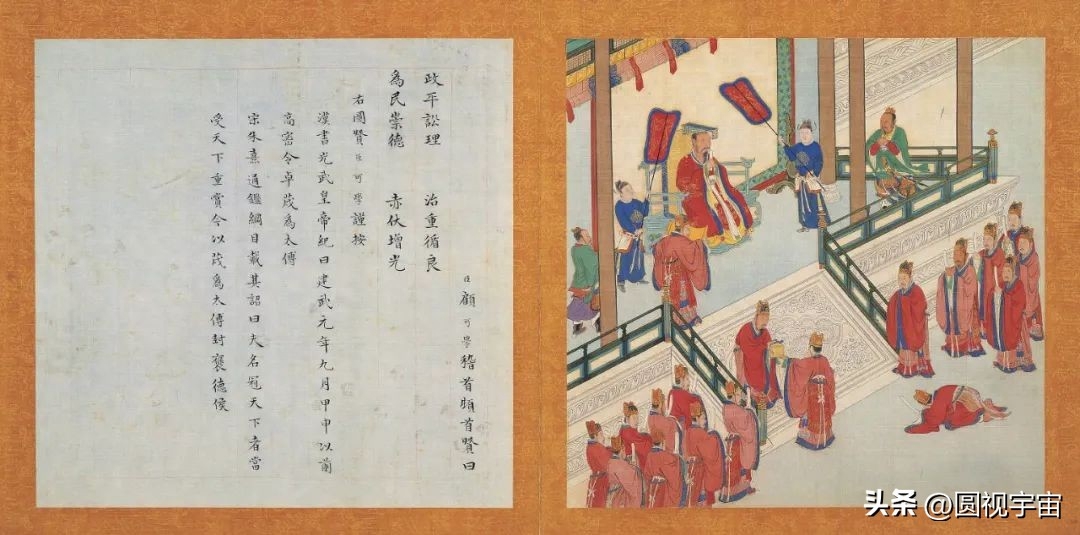 臣顧可學稽首頓首贊曰
政平訟理 治重循良
為民崇德 赤伏增光
右圖贊臣可學謹按
漢書光武皇帝紀曰建武元年九月甲申以前
高密令卓茂為太傅
宋朱熹通鑑綱目載其詔曰夫名冠天下者當
受天下重賞今以茂為太傅封褒德侯
头条 @圆视宇宙